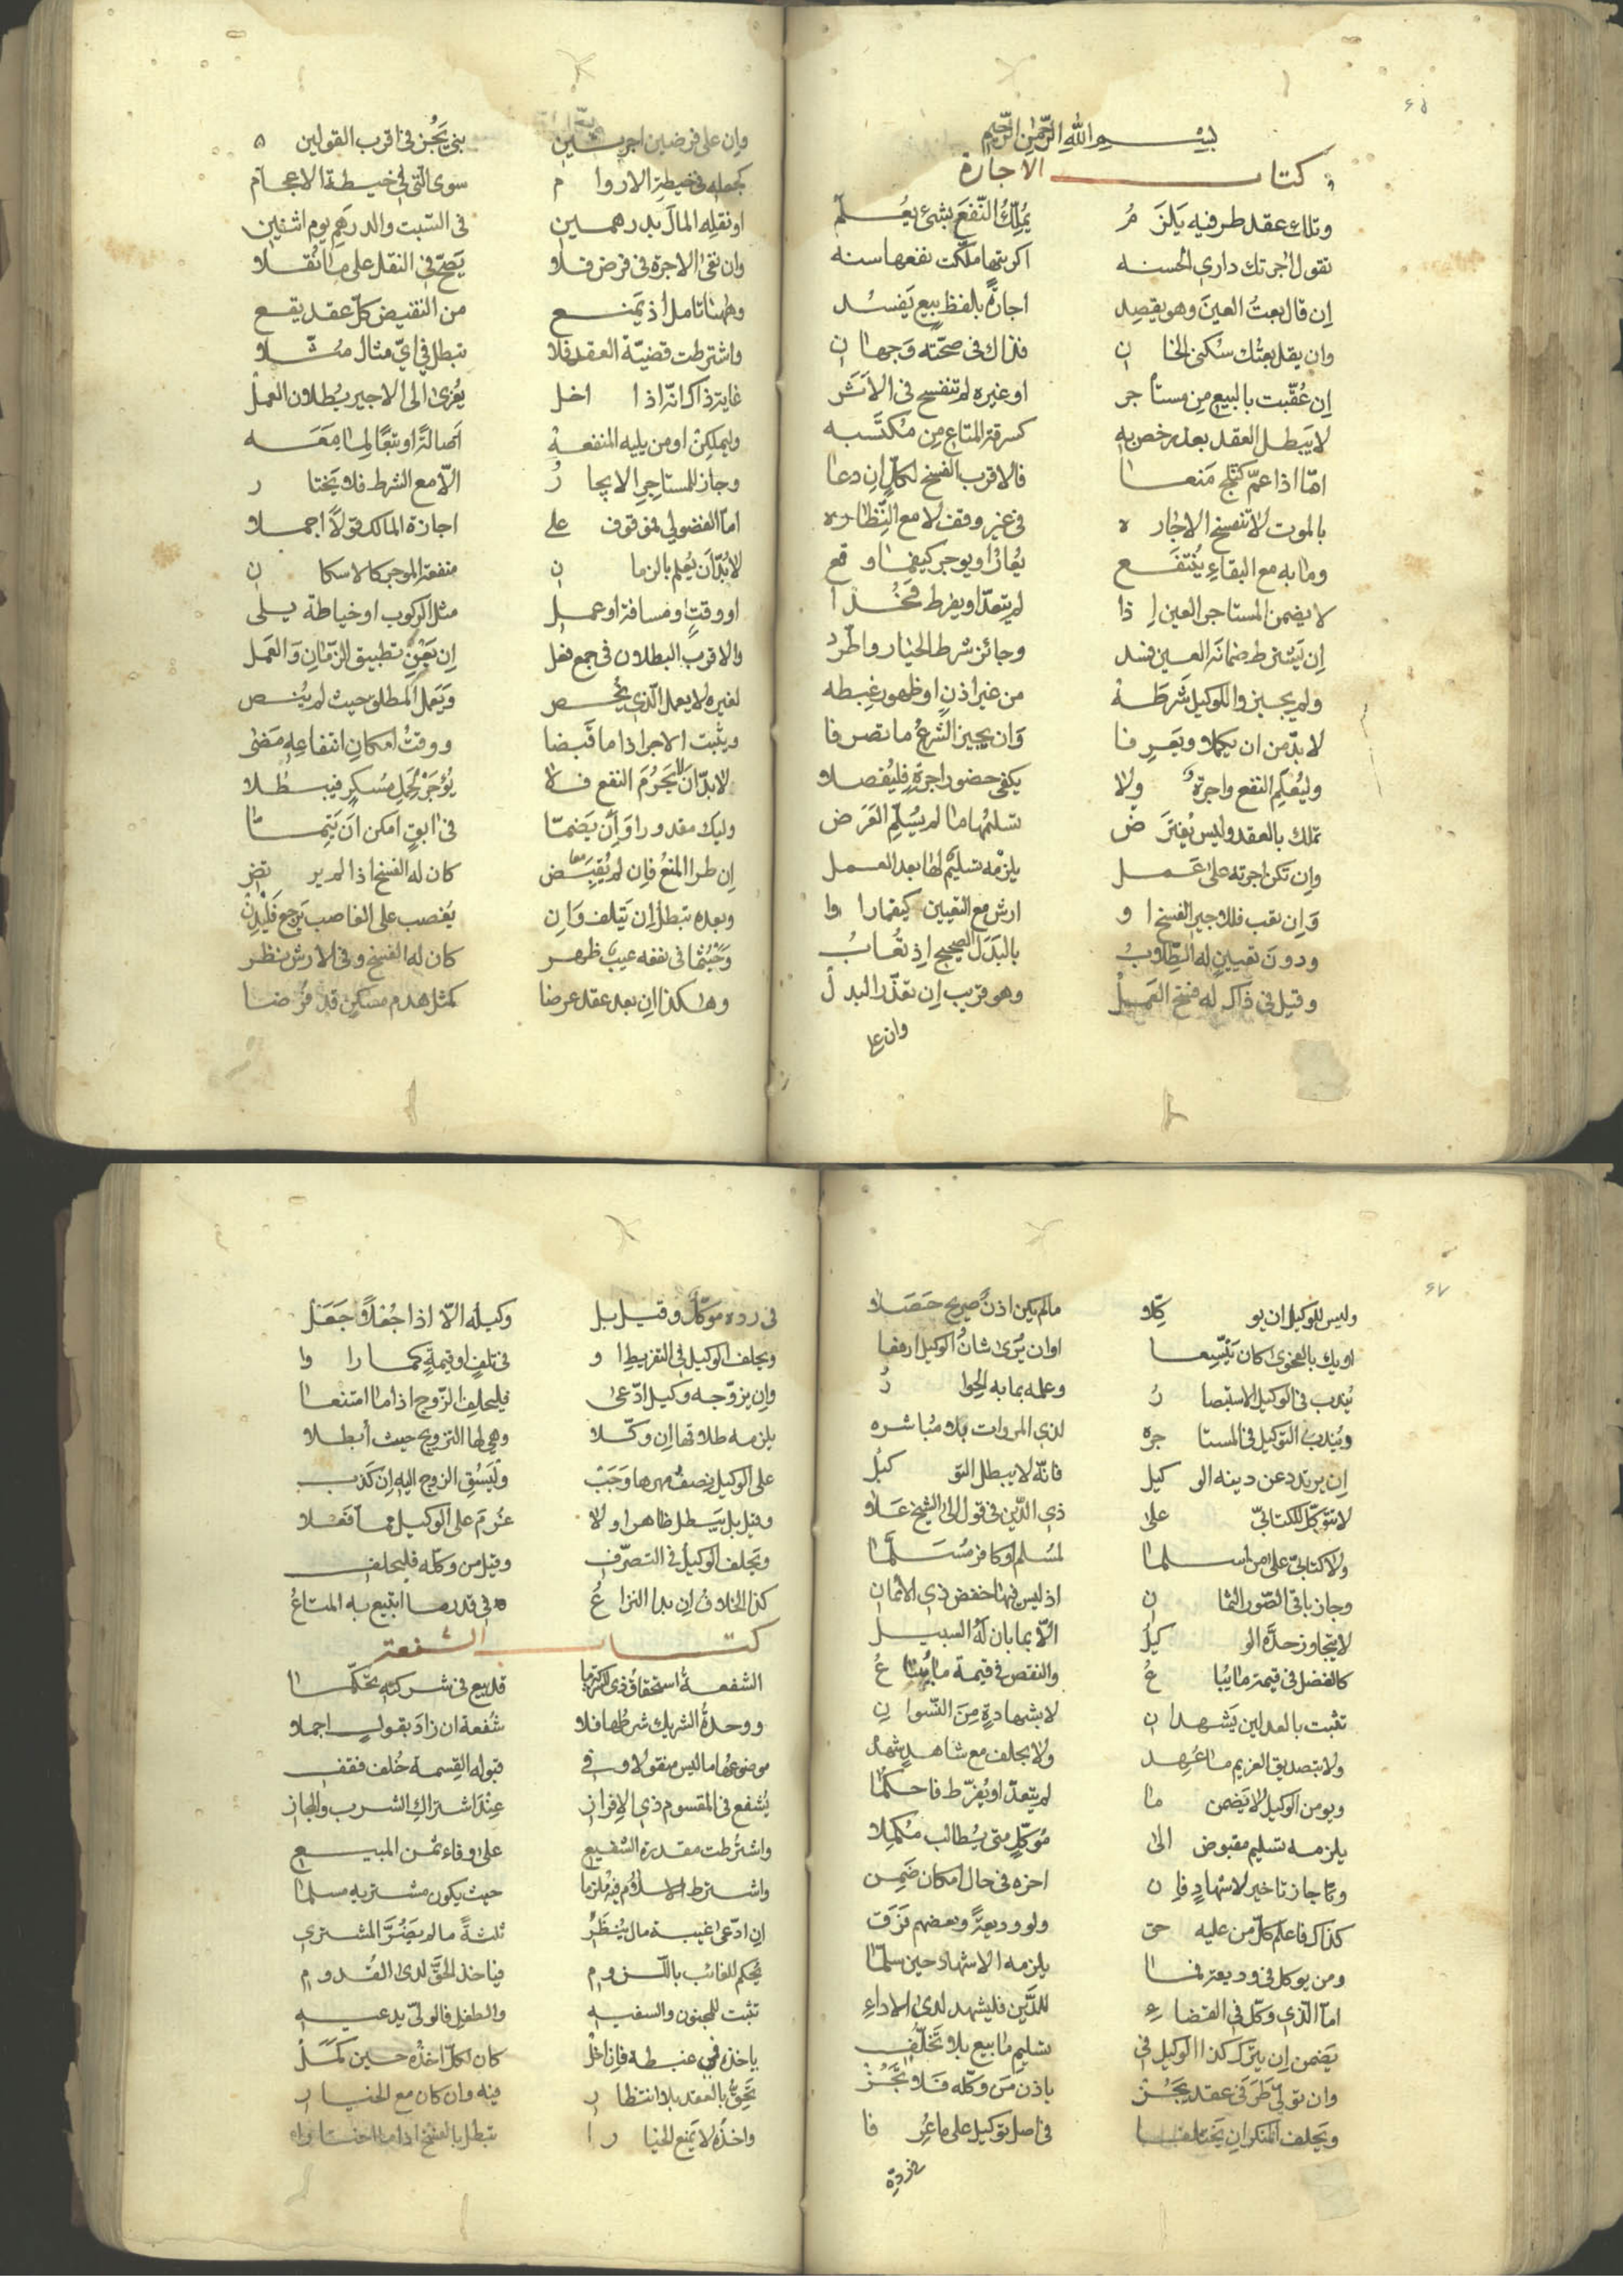 بسم الله الرحمن الرحيم
كتاب الاجارة
وتلك عقد طرفيه يلزم يملك النفع بشئ يعلم
تقول اجرتك داري الحسنه اكريتها ملكت نفعها سنه
ان قال بعت العين وهو يقصد اجارة بلفظ بيع يفسد
وان يقل بعتك سكنى الخان فذاك في صحته وجهان
ان عقبت بالبيع من مستاجر او غيره لم تنفسخ في الاشر
لا يبطل العقد بعذر خص به كسرقة المتاع من مكتسبه
اما اذا عم كثلج منعا فالاقرب الفسخ لكل ان دعا
بالموت لا تنفسخ الاجاره في غير وقف لا مع النظاره
وما به مع البقاء ينتفع يعار او يوجر كيفما وقع
لا يضمن المستاجر العين اذا لم يتعد او يفرط فخذا
ان يشترط ضمانه العين فسد وجائز شرط الخيار واطرد
ولم يجيز والوكيل شرطه من غير اذن او ظهور غبطه
لا بد من ان يكملا ويعرفا وان يجيز الشرع ما تصرفا
وليعلم النفع واجرة ولا يكفي حضور اجرة فليفصلا
تملك بالعقد وليس يفترض تسليمها ما لم يسلم الغرض
وان تكن اجرته على عمل يلزمه تسليم لها بعد العمل
وان تعب فللاجير الفسخ او ارش مع التعيين كيفما راوا
ودون تعيين له المطلوب بالبدل الصحيح اذ تعاب
وقيل في ذاك له فسخ العمل وهو قريب ان تعذر البدل
وان علي
وان على فرضين اجر بنى يجز في اقرب القولين
كجعله في خيطة الاروام سوى التي في خيطة الاعجام
او نقله المال بدرهمين في السبت والدرهم يوم اثنين
وان نفى الاجرة في فرض فلا يصح في النقل على ما نقلا
وههنا تامل اذ يمنع من النقيض كل عقد يقع
واشترطت قضية العقد فلا تبطل في اي مثال مثلا
غاية ذاك انه اذا اخل يعزى الى الاجير بطلان العمل
وليملكن او من يليه المنفعة اصالة او تبعا لما معه
وجاز للمستاجر الايجار الا مع الشرط فلا يختار
اما الفضولي فموقوف على اجازة المالك قولا اجملا
لا بد ان يعلم بالزمان منفعة الموجر كالاسكان
او وقت او مسافة او عمل مثل الركوب او خياطة يلي
والاقرب البطلان في جمع نقل ان يعن تطبيق الزمان والعمل
لغيره لا يعمل الذي يخص ويعمل المطلق حيث لم ينص
ويثبت الاجر اذا ما قبضا ووقت امكان انتفاعه مضى
لا بد ان لا يحرم النفع فلا يؤجر لحمل مسكر فيبطلا
وليك مقدورا وان يضما في ابق امكن ان يتما
ان طرا المنع فان لم يقبض كان له الفسخ اذا لم يرتض
وبعده تبطل ان يتلف وان يغصب على الغاصب يرجع
وحيثما في نفعه عيب ظهر كان له الفسخ وفي الارش نظر
وهكذا ان بعد عقد عرضا كمثل هدم مسكن قد فرضا
وليس للوكيل ان يوكلا ما لم يكن اذن صريح حصلا
او يك بالفحوى كان يتسعا او ان يرى شان الوكيل ارفعا
يندب في الوكيل الاستبصار وعلمه بما به الحوار
ويندب التوكيل في المستاجره لذي المروات بلا مباشره
ان يرتدد عن دينه الوكيل فانه لا يبطل التوكيل
لا تتوكل للكتابي على ذي الدين في قول الى الشيخ علا
ولا كتابي على من اسلما لمسلم او كافر مسلما
وجاز باقي الصور الثمان اذ ليس فيها خفض ذي الايمان
لا يتجاوز حده الوكيل الا بما بان له السبيل
كالفضل في قيمة ما يباع والنقص في قيمة ما يبتاع
تثبت بالعدلين يشهدان لا بشهادة من النسوان
ولا بتصديق الغريم ما عهد ولا بحلف مع شاهد شهد
ويومن الوكيل لا يضمن ما لم يتعد او يفرط فاحكما
يلزمه تسليم مقبوض الى موكل متى يطالب مكملا
وما جاز تاخير لاشهاد فان اخره في حال امكان ضمن
كذاك فاعلم كل من عليه حق ولو وديعة وبعضهم فرق
ومن يوكل في وديعة فما يلزمه الاشهاد حين سلما
اما الذي وكل في القضاء للدين فليشهد لدى الاداء
يضمن ان يترك كذا الوكيل في تسليم ما بيع بلا تخلف
وان تولى طرفي عقد يجز باذن من وكله فلا تجز
ويحلف المنكر ان يختلفا في اصل توكيل على ما عرفا
في رده
في رده موكل وقيل بل وكيله الا اذا جعلا جعل
ويحلف الوكيل في التفريط او في تلف او قيمة كما راوا
وان يزوجه وكيل ادعى فليحلف الزوج اذا ما امتنعا
يلزمه طلاقها ان وكلا وهي لها التزويج حيث ابطلا
على الوكيل نصف مهرها وجب وليسق الزوج اليه ان كذب
وقيل بل يبطل ظاهرا ولا غرم على الوكيل فيما فعلا
ويحلف الوكيل في التصرف وقيل من وكله فليحلف
كذا الخلاف ان بدا النزاع في قدر ما ابتيع به المتاع
كتاب الشفعة
الشفعة استحقاق ذي الشركة ما قد بيع في شركته تحكما
ووحدة الشريك شرطها فلا شفعة ان زاد بقول اجملا
موضوعها ما ليس منقولا وفي قبوله القسمة خلف فقف
يشفع في المقسوم ذي الافراز عند اشتراك الشرب والمجاز
واشترطت مقدرة الشفيع على وفاء ثمن المبيع
واشترط الاسلام فيه ملزما حيث يكون مشتريه مسلما
ان ادعى غيبة مال ينظر ثلثة ما لم يضر المشتري
يحكم للغائب باللزوم فياخذ الحق لدى القدوم
تثبت للمجنون والسفيه والطفل فالولي يدعيه
ياخذه في غبطة فان اخل كان لكل اخذه حين كمل
تحق بالعقد بلا انتظار فيه وان كان مع الخيار
واخذه لا يمنع الخيارا تبطل بالفسخ اذا ما اختارا